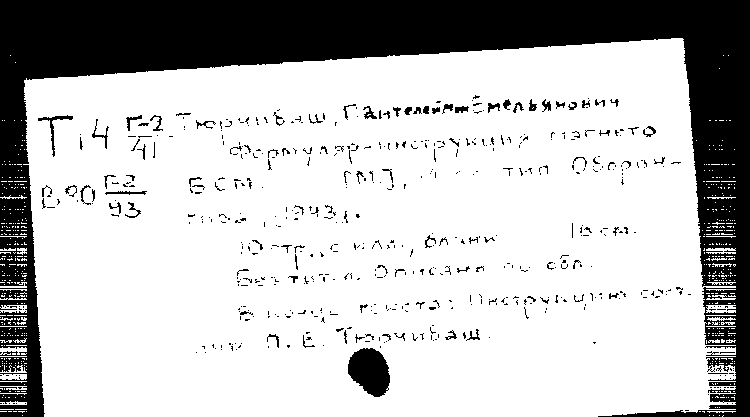 Т14 Г-2/41 Тюрчиваш, Пантелеймон Емельянович
Формуляр-инструкция магнето
В90 Г-2/43 БСМ. [М.], тип. Оборон-
гиза, 1943г.
10 стр., с илл., бланк 16 см.
Без тит. л. Описано по обл.
В конце текста: Инструкцию сост.
П. Е. Тюрчиваш.